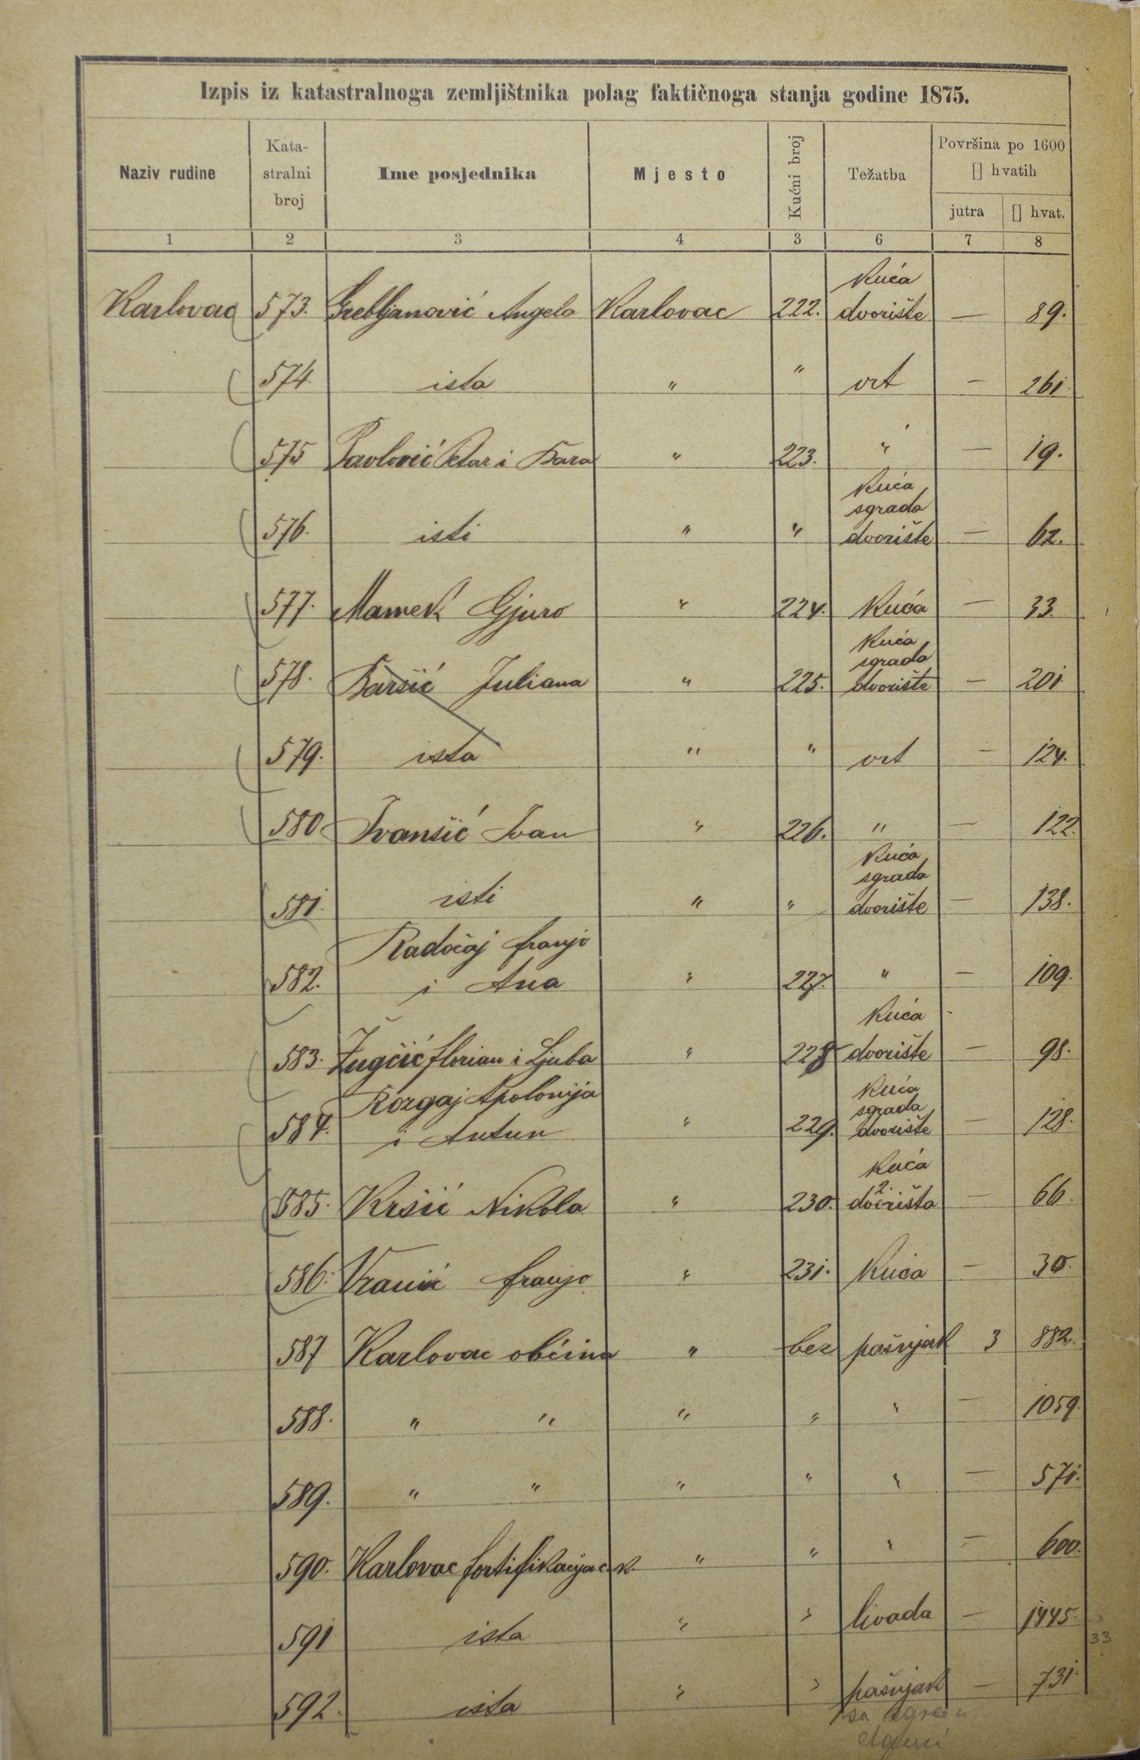 Izpis iz katastralnoga zemljištnika polag faktičnoga stanja godine 1875.
Naziv rudine Kata-stralni broj Ime posjednika Mjesto Kućni broj Težatba Površina po 1600 □ hvatih
jutra □ hvat.
1 2 3 4 3 6 7 8
Kuća
Karlovac 573. Grebljanović Angela Karlovac 222. dvorište — 89.
574. ista " " vrt — 261.
575 Pavlović Petar i Bara " 223. " — 19.
Kuća
sgrada
576. isti " " dvorište — 62.
577. Mamek Gjuro " 224. Kuća — 33
Kuća
sgrada
578. Baršić Juliana " 225. dvorište — 201
579. ista " " vrt — 124.
580 Ivansić Ivan " 226. " — 122.
Kuća
sgrada
581. isti " " dvorište — 138.
Radočaj franjo
582. i Ana " 227. " — 109.
Kuća
583. Žugčić florian i Ljuba " 228 dvorište — 98.
Rozgaj Apolonija Kuća
sgrada
584. i Antun " 229. dvorište — 128.
Kuća
2
585. Kršić Nikola " 230. dvorišta — 66.
586. Vranić franjo " 231. Kuća — 30.
587 Karlovac občina " bez pašnjak 3 882.
588. " " " " " — 1059.
589. " " " " " — 571.
590. Karlovac fortifikacija c. k. " " " — 600.
591 ista " " livada — 1445.
33
592. ista " " pašnjak — 731.
sa